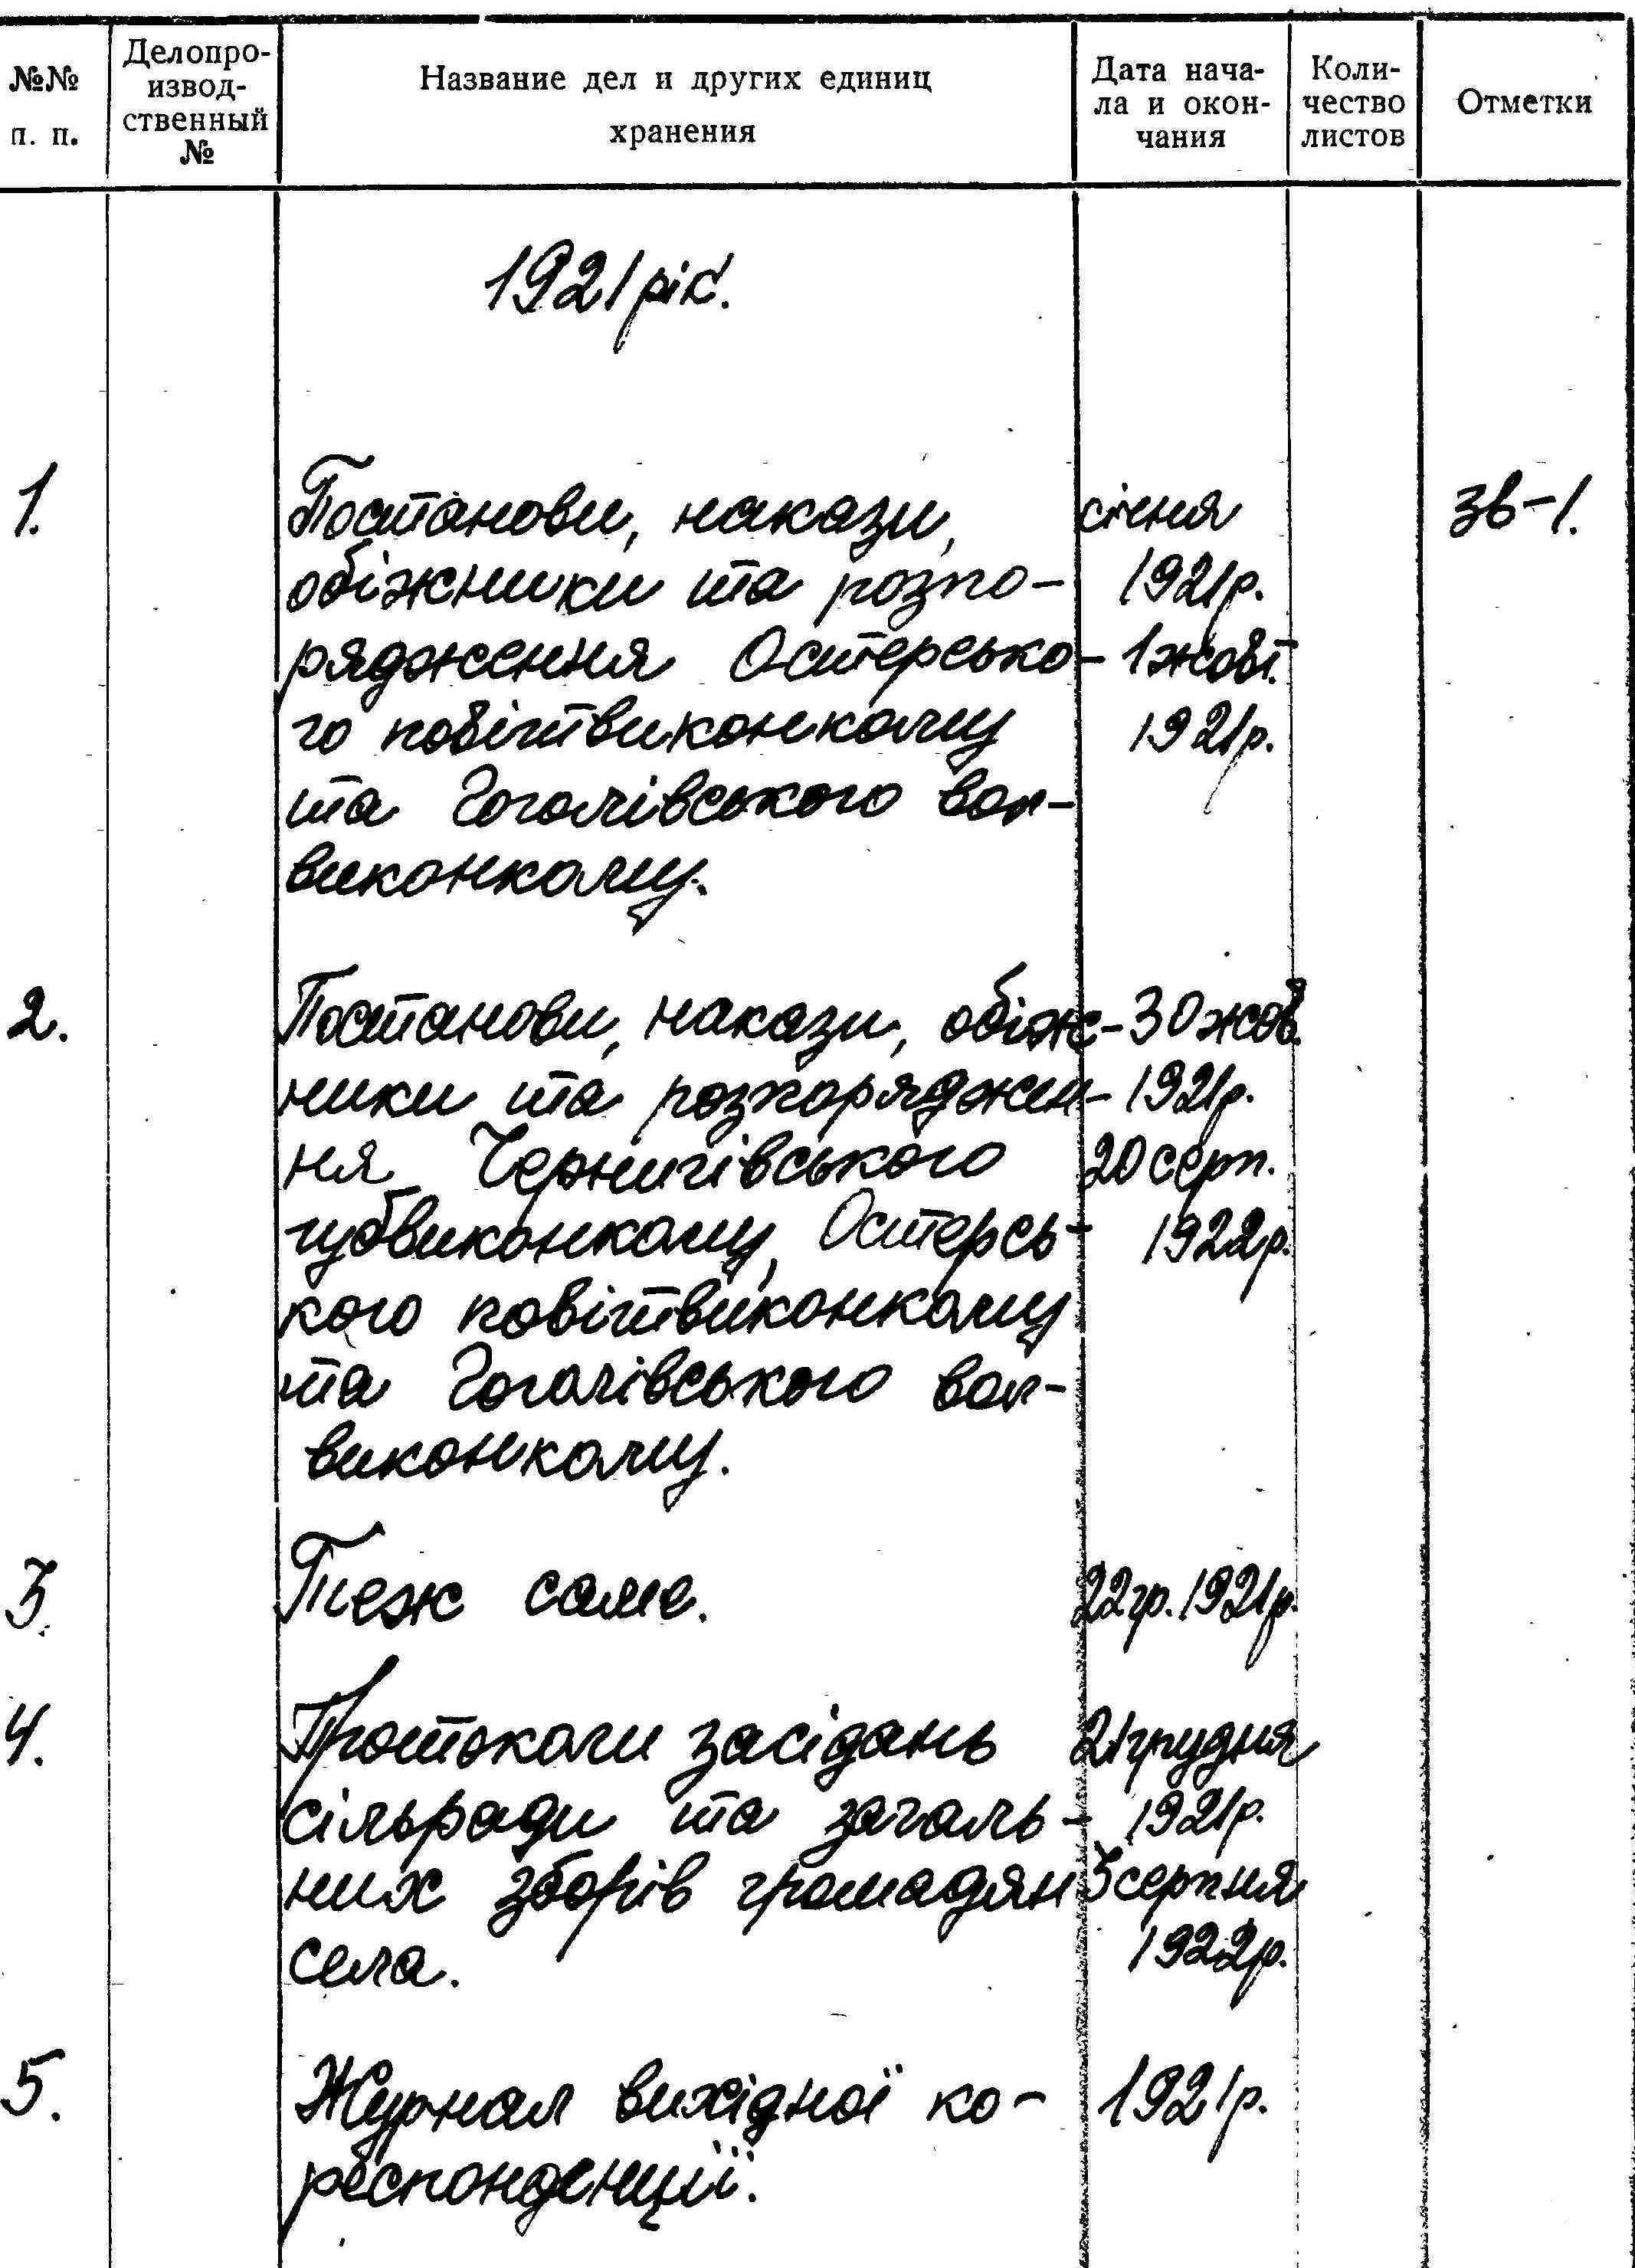 №№ п. п.
Делопро-
извод-
ственный
№
Название дел и других единиц
хранения
Дата нача-
ла и окон-
чания
Коли-
чество
листов
Отметки
1921 рік.
1.
Постанови, накази,
обіжники та розпо-
рядження Остерсько-
го повітвиконкому
та Гоголівського вол-
виконкому.
січня
1921р.
1 жовт.
1921р.
зв-1.
2.
Постанови, накази, обіж-
ники та розпоряджен-
ня Чернигівського
губвиконкому, Остерсь-
кого повітвиконкому
та Гоголівського вол-
виконкому.
30 жов.
1921р.
20 серп.
1922р.
3.
Теж саме.
22 гр. 1921р.
4.
Протоколи засідань
сільради та загаль-
них зборів громадян
села.
21 грудня
1921р.
3 серпня
1922р.
5.
Журнал вихідної ко-
респонденції.
1921р.